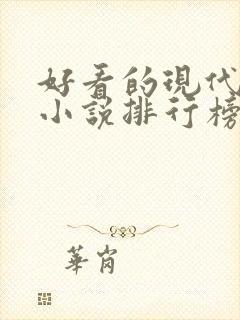 好看的現代
小說排行榜
華肖